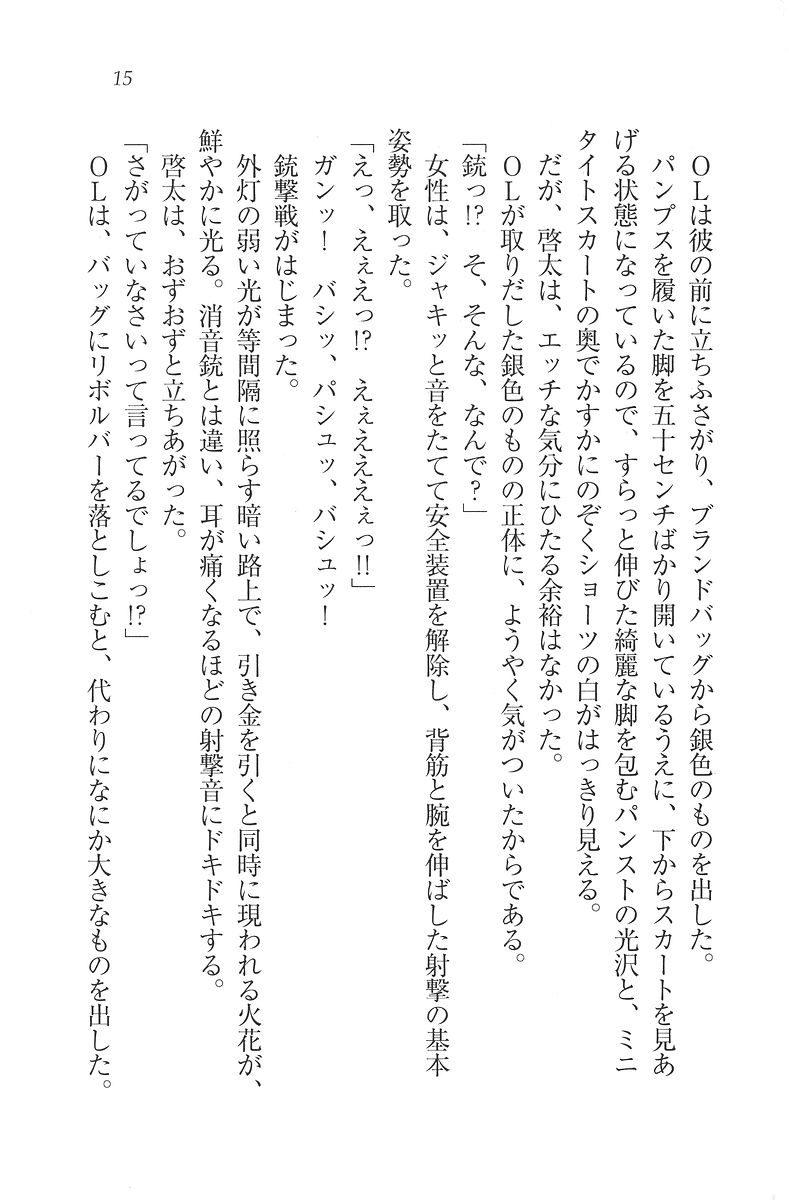 15
　ＯＬは彼の前に立ちふさがり、ブランドバッグから銀色のものを出した。
　パンプスを履いた脚を五十センチばかり開いているうえに、下からスカートを見あ
げる状態になっているので、すらっと伸びた綺麗な脚を包むパンストの光沢と、ミニ
タイトスカートの奥でかすかにのぞくショーツの白がはっきり見える。
　だが、啓太は、エッチな気分にひたる余裕はなかった。
　ＯＬが取りだした銀色のものの正体に、ようやく気がついたからである。
「銃っ!?　そ、そんな、なんで？」
　女性は、ジャキッと音をたてて安全装置を解除し、背筋と腕を伸ばした射撃の基本
姿勢を取った。
「えっ、えぇえっ!?　えぇええぇっ!!」
　ガンッ！　バシッ、パシュッ、バシュッ！
　銃撃戦がはじまった。
　外灯の弱い光が等間隔に照らす暗い路上で、引き金を引くと同時に現われる火花が、
鮮やかに光る。消音銃とは違い、耳が痛くなるほどの射撃音にドキドキする。
　啓太は、おずおずと立ちあがった。
「さがっていなさいって言ってるでしょっ!?」
　ＯＬは、バッグにリボルバーを落としこむと、代わりになにか大きなものを出した。